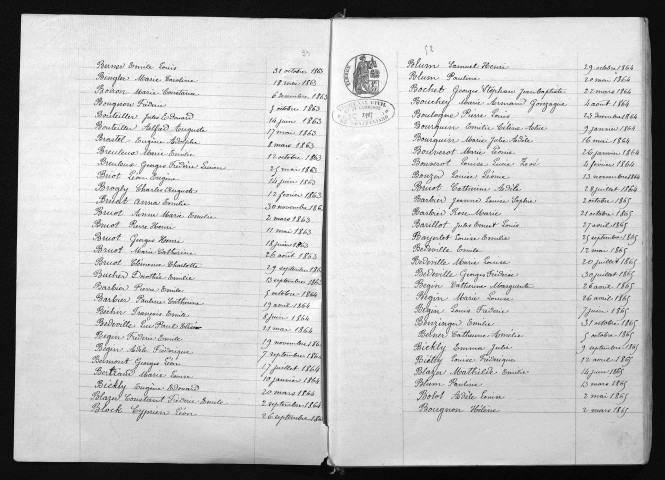 Berner Emile Louis 31 octobre 1863
Bingler Marie Caroline 18 mai 1863
Boiron Marie Constance 6 decembre 1863
Bougnon Fréderic 5 octobre 1863
Bouteiller Jules Edouard 14 juin 1863
Bouteiller Alfred Auguste 17 mai 1863
Brastel Eugène Adolphe 8 mars 1863
Breuleux Marie Emilie 12 octobre 1863
Breuleux Georges Fréderic Lucien 25 mai 1863
Briot Léon Eugène 24 juin 1863
Brogly Charles Auguste 12 fevrier 1863
Bruot Anna Emilie 30 novembre 1863
Bruot Anne Marie Emilie 2 mars 1863
Bruot Pierre Henri 11 mai 1863
Bruot Georges Henri 18 juin 1863
Bruot Marie Catherine 26 aout 1863
Bruot Clémence Charlotte 29 septembre 1863
Bucher Dorothée Emilie 13 septembre 1863
Barbier Pierre Emile 5 octobre 1864
Barbier Pauline Catherine 19 avril 1864
Bicher François Emile 8 juin 1864
Bedeville Luc Paul 21 mai 1864
Bégin Fréderic Emile 19 novembre 1864
Bégin Adèle Frédérique 7 septembre 1864
Bermont Georges Léon 17 juillet 1864
Bertrand Marie Louise 10 janvier 1864
Bickly Eugène Edouard 20 mars 1864
Blazer Constant Fréderic Emile 2 septembre 1864
Block Cyprien Léon 26 septembre 1864
52
Blum Samuel Henri 29 octobre 1864
Blum Pauline 20 mai 1864
Bochet Georges Stéphane Jean Baptiste 22 mars 1864
Bouchey Marie Armand Gonzague 4 aout 1864
Boulogne Pierre Louis 23 decembre 1864
Bourquin Emilie Celine 9 janvier 1864
Bourquin Marie Julie Adèle 16 mai 1864
Bourerot Marie Léonie 26 janvier 1864
Bouverot Louise Lucie José 4 fevrier 1864
Bouzer Louise Léonie 13 novembre 1864
Bruot Catherine Adèle 28 juillet 1864
Barbier Jeanne Louise Sophie 2 octobre 1865
Barbier Rose Marie 21 octobre 1865
Barillot Jules Ernest Louis 27 avril 1865
Louise Emilie 25 septembre 1865
Bedeville Emile 12 mai 1865
Bedeville Marie Louise 20 juillet 1865
Bedeville Georges Fréderic 30 juillet 1865
Bégin Catherine Marguerite 26 aout 1865
Bégin Marie Louise 26 aout 1865
Bégin Louis Fréderic 7 juin 1865
Benzinger Emilie 31 octobre 1865
Berner Catherine Amélie 5 octobre 1865
Bickly Emma Julie 9 septembre 1865
Bietry Louise Frédérique 12 avril 1865
Blazer Mathilde Emilie 14 juin 1865
Blum Pauline 13 mars 1865
Bolot Adèle Louise 2 mai 1865
Bougnon Hélène 2 mars 1865